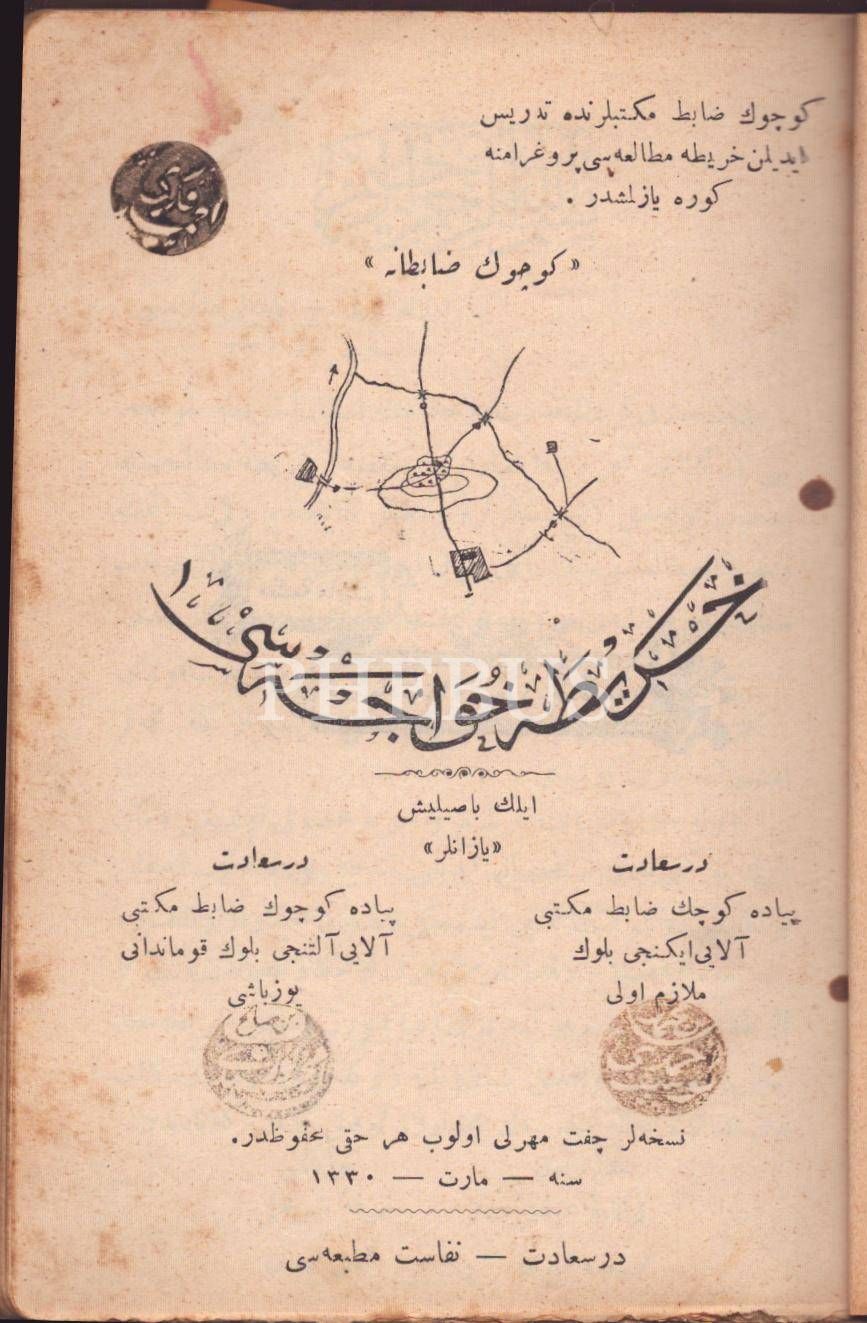 كوچوك ضابط مكتبلرنده تدريس
ايديلن خريطه مطالعه‌سى پروغرامنه
كوره يازلمشدر .
«كوچوك ضابطانه»
خريطه خواجه‌سى
PHEBUS
ايلك باصيليش
«يازانلر»
درسعادت
پياده كوچك ضابط مكتبى
آلايى ايكنجى بلوك
ملازم اولى
درسعادت
پياده كوچوك ضابط مكتبى
آلايى آلتنجى بلوك قوماندانى
يوزباشى
نسخه‌لر چفت مهرلى اولوب هر حقى محفوظدر.
سنه — مارت — ١٣٣٠
درسعادت — نفاست مطبعه‌سى